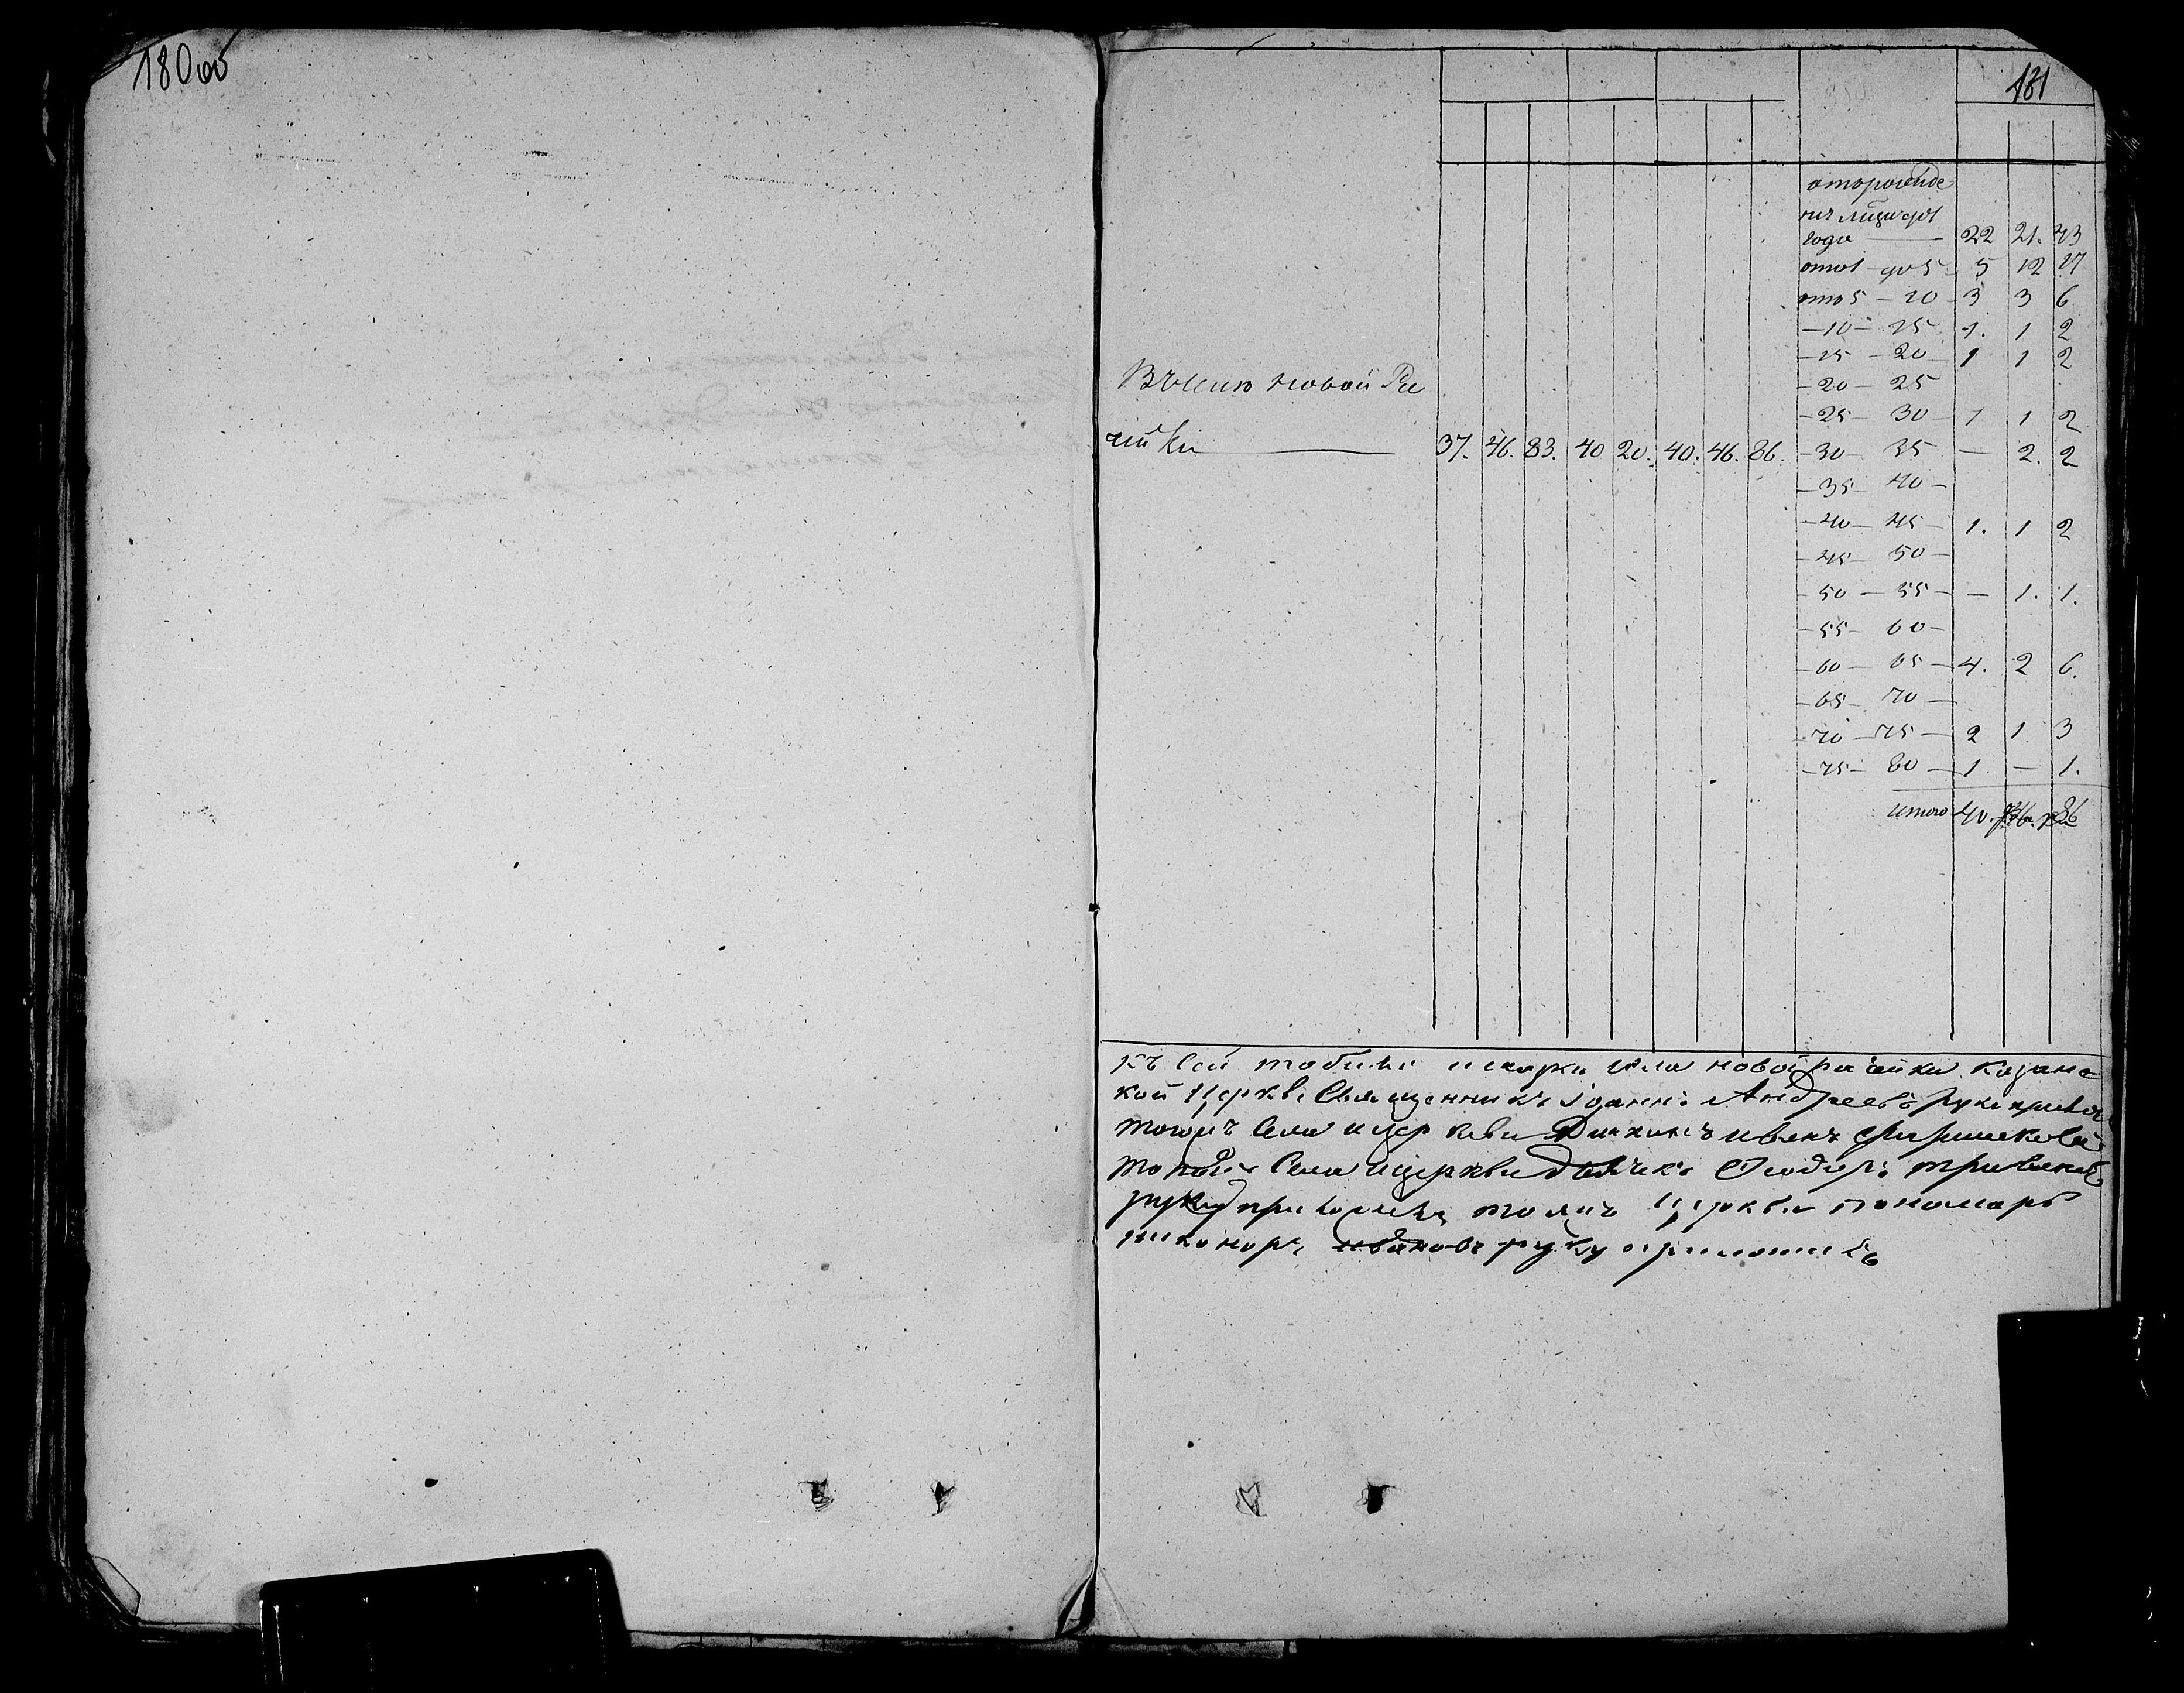 180об
181
отрожде
нія
года — 22 21. 43
от 1 - до 5 5 12 17
от 5 - 10 - 3 3 6
- 10 - 15 1. 1 2
- 15 - 20 1 1 2
- 20 - 25
- 25 - 30 - 1 1 2
Въ селѣ новой Ра
чийки — 37. 46. 83. 40 20. 40. 46. 86. - 30 - 35 — 2. 2
- 35 - 40 -
- 40 - 45 - 1. 1 2
- 45 - 50 -
- 50 - 55 - — 1. 1.
- 55 - 60 -
- 60 - 65 - 4. 2 6.
- 65 - 70 -
- 70 - 75 - 2 1 3
- 75 - 80 - 1 — 1.
итого 40. 46. 86
Къ сей табели села новой рачийки казанс
кой церкви Священникъ Іоаннъ Андреевъ руку
тогожъ села и церкви Диаконъ иванъ
села и церкви дьячекъ Феодоръ
руку приложилъ тояжъ церкви пономарь
никоноръ ивановъ руку приложилъ